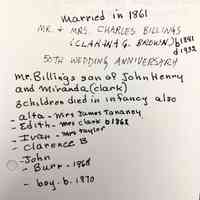 married in 1861
MR. & MRS. CHARLES BILLINGS
(CLARINA G. BROWN) b1841
d1932
50TH WEDDING ANNIVERSARY
Mr. Billings son of John Henry
and Miranda (Clark)
3 children died in infancy also
- alta - Mrs James Tananey
- Edith - Mrs Clark b1862
- Ivan - Mrs Taylor
- Clarence B
- John
- Burr - 1868
- boy - b. 1870